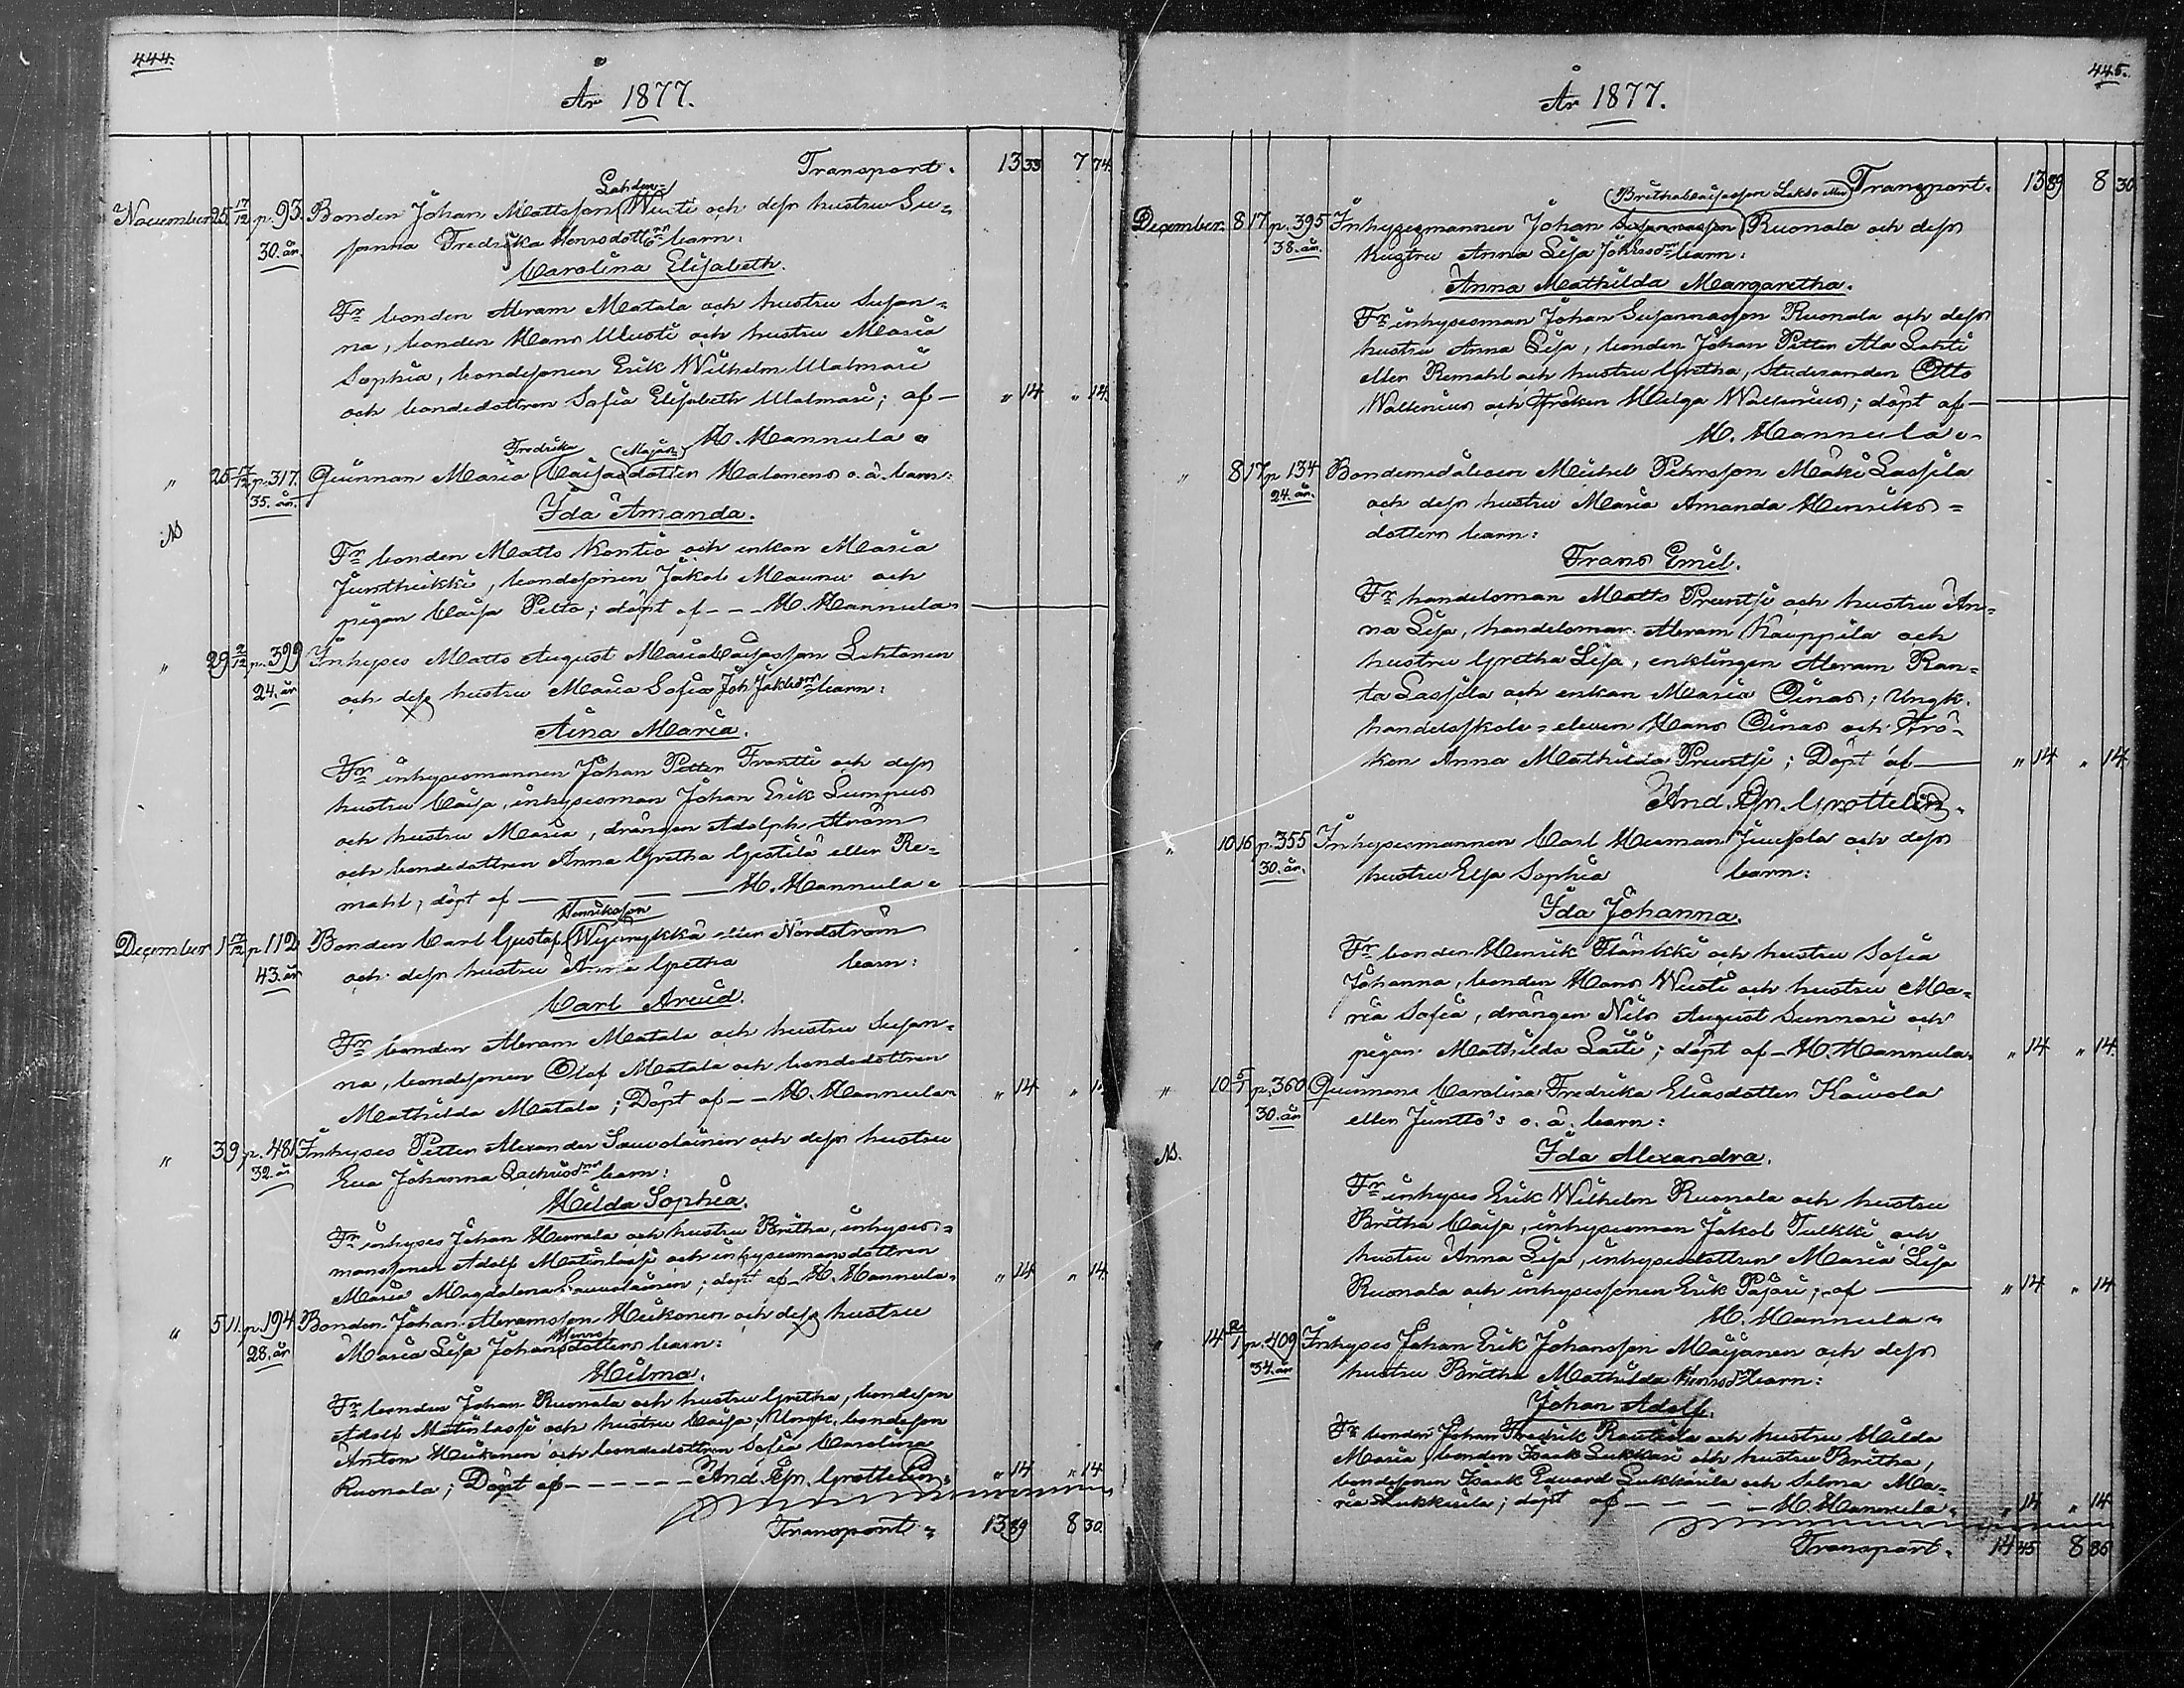 444.
År 1877.
Transport. 13 33 7 74
Lahden-
November 25 17/12 p. 93 Bonden Johan Mattsson Wusti och dess hustru Su-
30. år. sanna Fredrika Hansdotters barn:
Carolina Elisabeth.
Fr bonden Abram Matala och hustru Susan-
na, bonden Hans Wusti och hustru Maria
Sophia, bondesonen Erik Wilhelm Ulalmari
och bondedottren Sofia Elisabeth Ulalmari; af — " 14 " 14
H. Hannula
Fredrika Majas
" 25 17/12 p. 317. Qvinnan Maria Caisas dotter Halonens o. ä. barn:
35. år.
Ida Amanda.
N
Fr bonden Matts Kontio och enkan Maria
Junttikki, bondesonen Jakob Maunu och
pigan Caisa Pelto; döpt af - - - H. Hannula
" 29 2/12 p. 399 Inhyses Matts August MariaCaisasson Lehtonen
24. år och dess hustru Maria Sofia Joh Jakobsdr barn:
Aina Maria.
Fr inhysesmannen Johan Petter Frantti och dess
hustru Caisa, inhysesman Johan Erik Lumpus
och hustru Maria, drängen Adolph Abram
och bondedottren Anna Gretha Gestilä eller Re-
mahl, döpt af — H. Hannula
Henriksson
December 1 17/12 p. 112 Bonden Carl Gustaf Nordström
43. år och dess hustru Anna Gretha barn:
Carl Arvid.
Fr bonden Abram Matala och hustru Susan-
na, bondesonen Olof Matala och bondedottren
Mathilda Matala; Döpt af - - H. Hannula " 14 " 14
" 3 9 p. 481 Inhyses Petter Alexander Sauvolainen och dess hustru
32. år Eva Johanna Zachrisdr barn:
Hilda Sophia.
Fr inhyses Johan Heurala och hustru Britha, inhyses-
mansonen Adolf Matinlassi och inhysesmansdottren
Maria Magdalena Sauvolainen; döpt af - H. Hannula. " 14 " 14
" 5 11. p. 194 Bonden Johan Abramsson Heikonen och dess hustru
28. år Maria Lisa Johans dotters barn:
Hilma.
Fr bonden Johan Ruonala och hustru Gretha, bondeson
Adolf Matinlassi och hustru Caisa; Ungk. bondeson
Anton Heikonen och bondedottren Sofia Carolina
Ruonala; Döpt af - - - - - And. Gr. Grottelin. " 14 " 14
Transport. 13 89 8 30.
445.
År 1877.
Transport. 13 89 8 30
December. 8 17 p. 395 Inhysesmannen Johan Susannasson Ruonala och dess
38. år. hustru Anna Lisa Johansdr barn:
Anna Mathilda Margaretha.
Fr inhysesman Johan Susannasson Ruonala och dess
hustru Anna Lisa, bonden Johan Petter Ala Lahti
eller Remahl och hustru Gretha, Studeranden Otto
Wallenius och Fröken Helga Wallenius; döpt af —
H. Hannula.
" 8 17 p. 134 Bondemågen Michel Pehrsson Mäki Lassila
24. år. och dess hustru Maria Amanda Henriks-
dotters barn:
Frans Emil.
Fr handelsman Matts Pruntsi och hustru An-
na Lisa, handelsman Abram Kauppila och
hustru Gretha Lisa, enklingen Abram Ran-
ta Lassila och enkan Maria Oinas; Ungk.
handelsskole-eleven Hans Oinas och Frö-
ken Anna Mathilda Pruntsi; Döpt af — " 14 " 14
And. Gr. Grottelin.
" 10 16 p. 355 Inhysesmannen Carl Herman Juusola och dess
30. år. hustru Elsa Sophia barn:
Ida Johanna.
Fr bonden Henrik Flänkki och hustru Sofia
Johanna, bonden Hans Wusti och hustru Ma-
ria Sofia, drängen Nils August Sunnari och
pigan Mathilda Laiti; döpt af - H. Hannula " 14 " 14.
" 10 5/1 p. 360 Qvinnans Carolina Fredrika Eliasdotter Kaivola
30. år eller Juntto's o. ä. barn:
N.
Ida Alexandra.
Fr inhyses Erik Wilhelm Ruonala och hustru
Britha Caisa, inhysesman Jakob Tulkki och
hustru Anna Lisa, inhysesdottren Maria Lisa
Ruonala och inhysessonen Erik Pajari; af — " 14 " 14
H. Hannula
" 14 p. 409 Inhyses Johan Erik Johansson Määjänen och dess
34. år hustru Britha Mathilda Hansdr barn:
Johan Adolf.
Fr bonden Johan Fredrik Rautiola och hustru Hilda
Maria, bonden Isaak Lukkari och hustru Britha,
bondesonen Isaak Edvard Lukkarila och Selma Ma-
ria Lukkarila; döpt af - - - - H. Hannula. " 14 " 14
Transport. 14 45 8 86